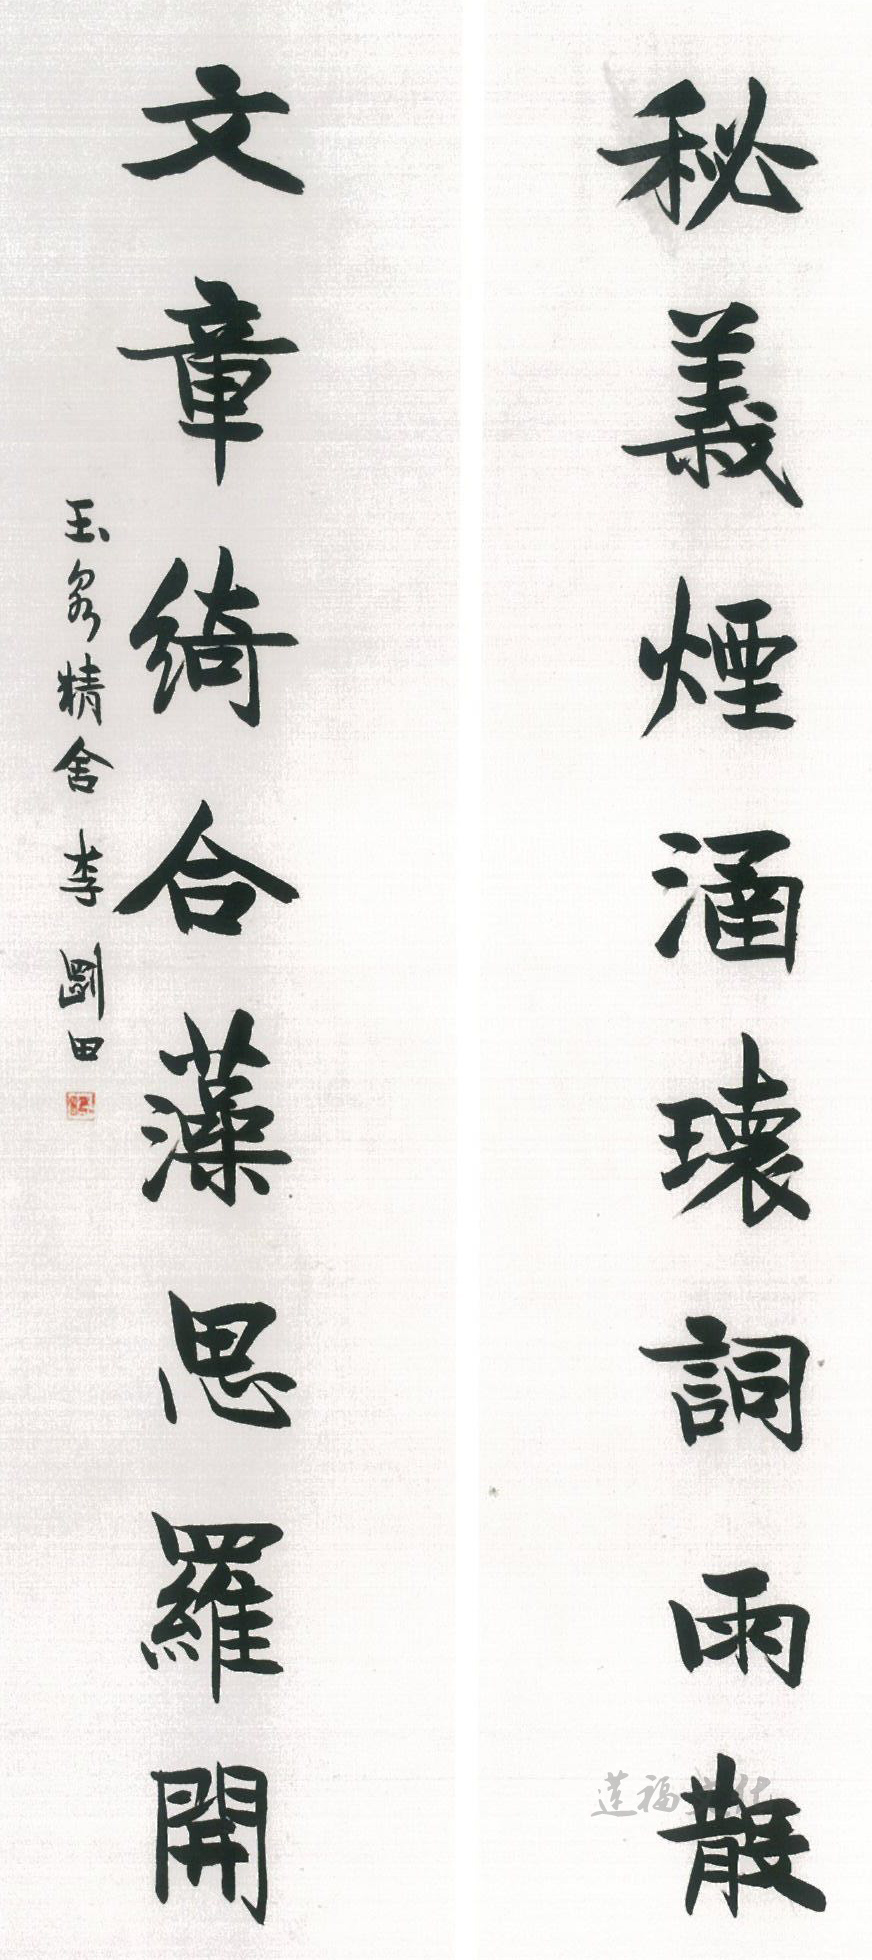 秘義煙涵瓌詞雨散
文章綺合藻思羅開
玉泉精舍李剛田
蓮福文化